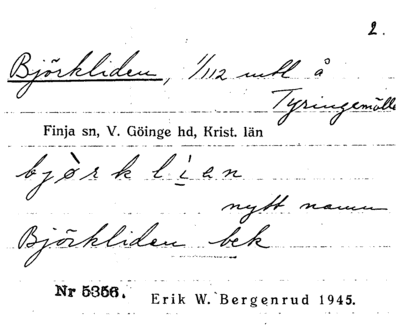 2.
Björkliden, 1/112 mtl å
Tyringemölla
Finja sn, V. Göinge hd, Krist. län
bjò̱rkli̱an
nytt namn
Björkliden bek
Nr 5356. Erik W. Bergenrud 1945.